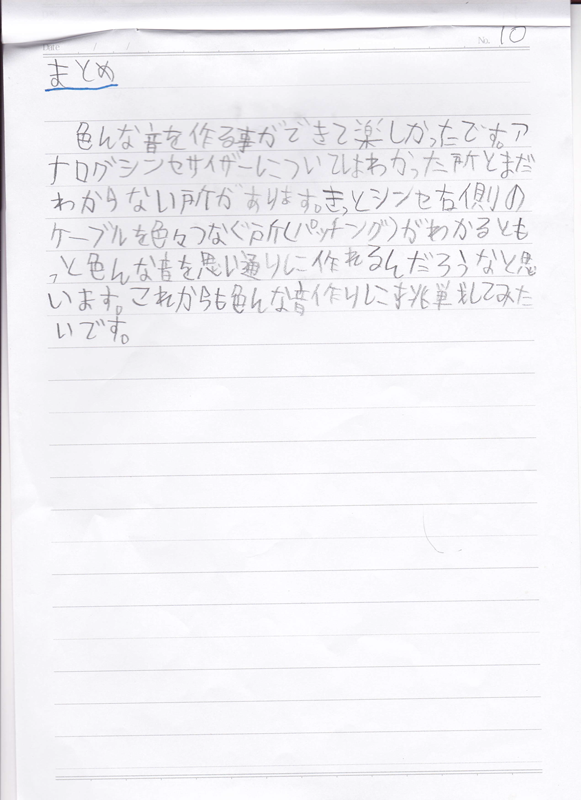 No. 10
まとめ
色んな音を作る事ができて楽しかったです。ア
ナログシンセサイザーについてはわかった所とまだ
わからない所があります。きっとシンセ右側の
ケーブルを色々つなぐ所(パッチング)がわかるとも
っと色んな音を思い通りに作れるんだろうなと思
います。これからも色んな音作りに挑戦してみた
いです。